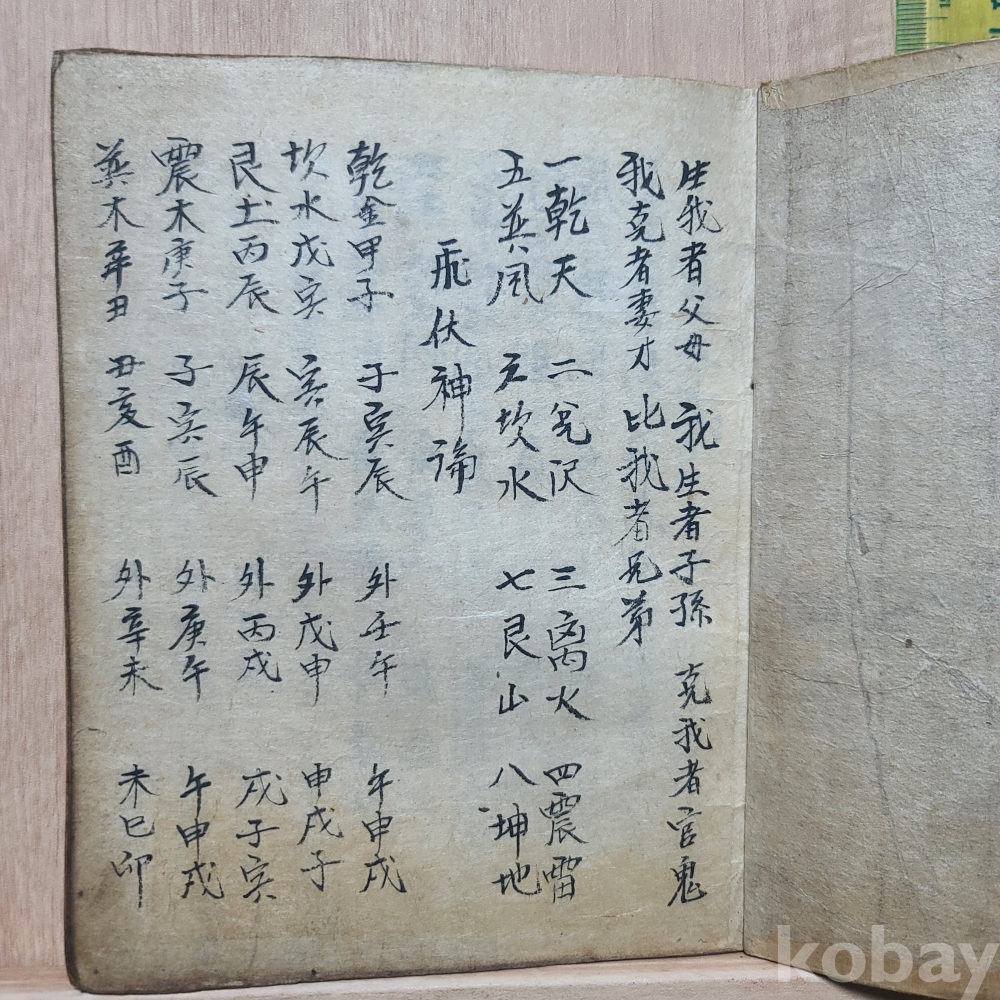 生我者父母 我生者子孫 克我者官鬼
我克者妻才 比我者兄弟
一乾天 二兌沢 三离火 四震雷
五巽風 六坎水 七艮山 八坤地
飛伏神論
乾金甲子 子寅辰 外壬午 午申戌
坎水戊寅 寅辰午 外戊申 申戌子
艮土丙辰 辰午申 外丙戌 戌子寅
震木庚子 子寅辰 外庚午 午申戌
巽木辛丑 丑亥酉 外辛未 未巳卯
kobay